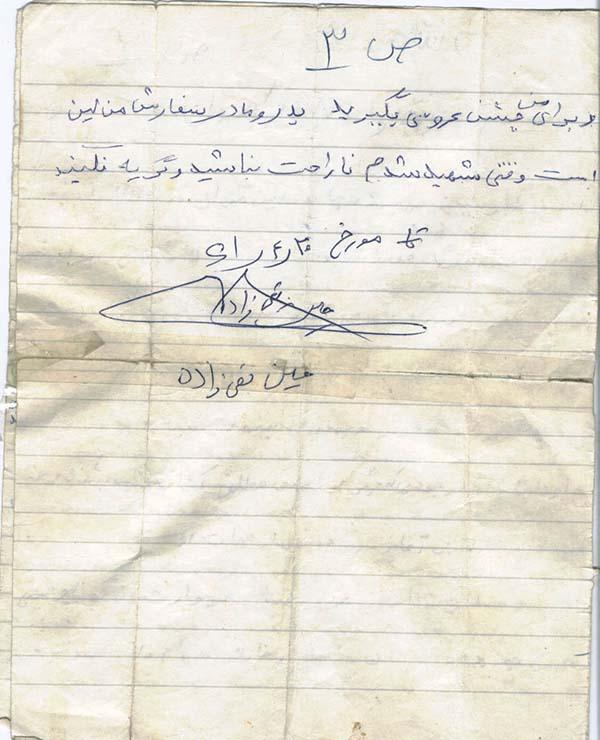 ص ۳
و برای من جشن عروسی بگیرید پدر و مادر سفارش من این
است وقتی شهید شدم ناراحت نباشید و گریه نکنید
مورخ
تقی زاده
تقی زاده